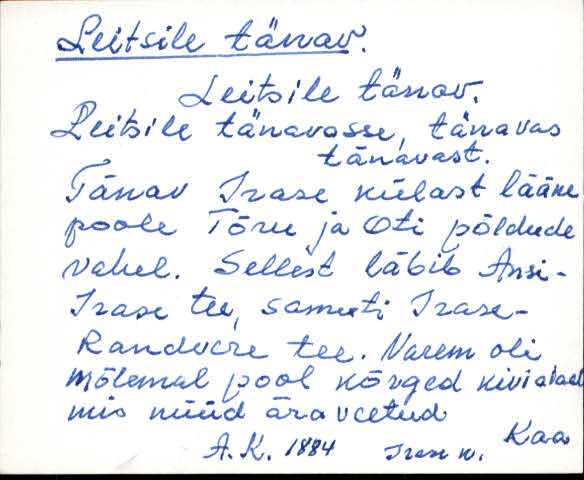 Leitsile tänav.
Leitsile tänav.
Leitsile tänavasse, tänavas
tänavast.
Tänav Irase külast lääne
poole Tõru ja Oti põldude
vahel. Sellest läbib Ansi-
Irase tee, samuti Irase-
Randvere tee. Varem oli
mõlemal pool kõrged kiviaiad
mis nüüd ära veetud
Kaa
A.K. 1884 Irase k.